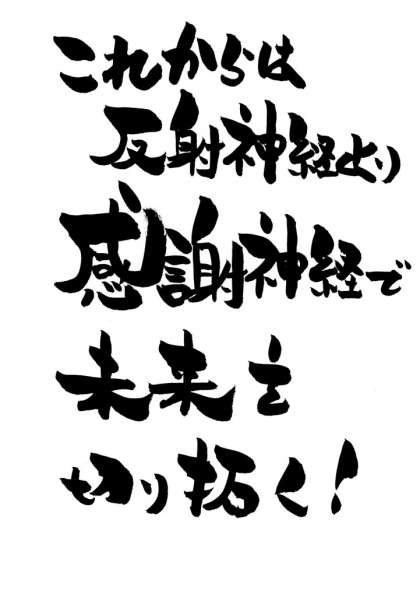 これからは
反射神経より
感謝神経で
未来を
切り拓く!